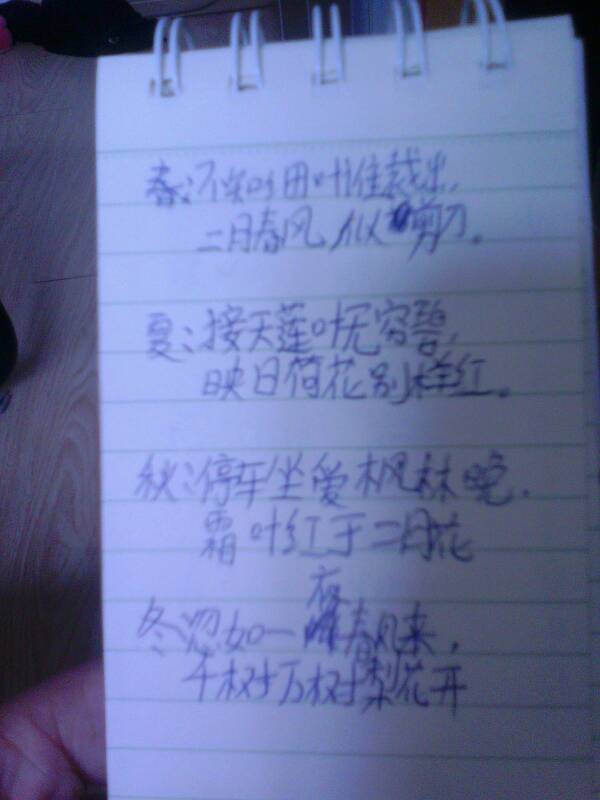 春:不知细叶谁裁出,
二月春风似剪刀。
夏:接天莲叶无穷碧,
映日荷花别样红。
秋:停车坐爱枫林晚.
霜叶红于二月花
冬:忽如一夜春风来,
千树万树梨花开